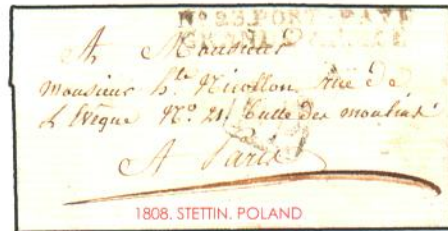 No. 23 PORT-PAYÉ
GRANDE ARMÉE
A Monsieur
Monsieur hte Nicollon rue de
L'Evêque No. 21. butte des moulins
A Paris
1808. STETTIN. POLAND